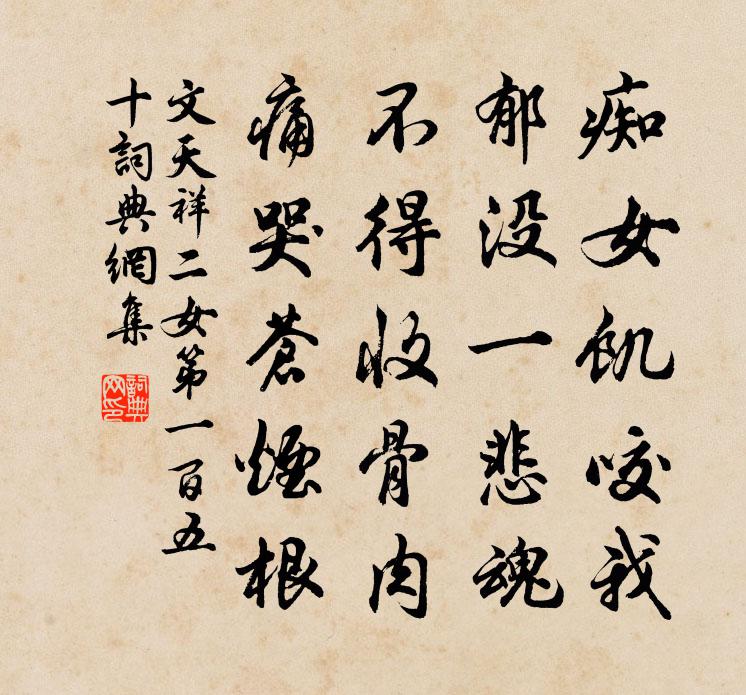 痴女飢咬我
郁没一悲魂
不得收骨肉
痛哭蒼煙根
文天祥二女第一百五
十詞典網集
詞典
网印